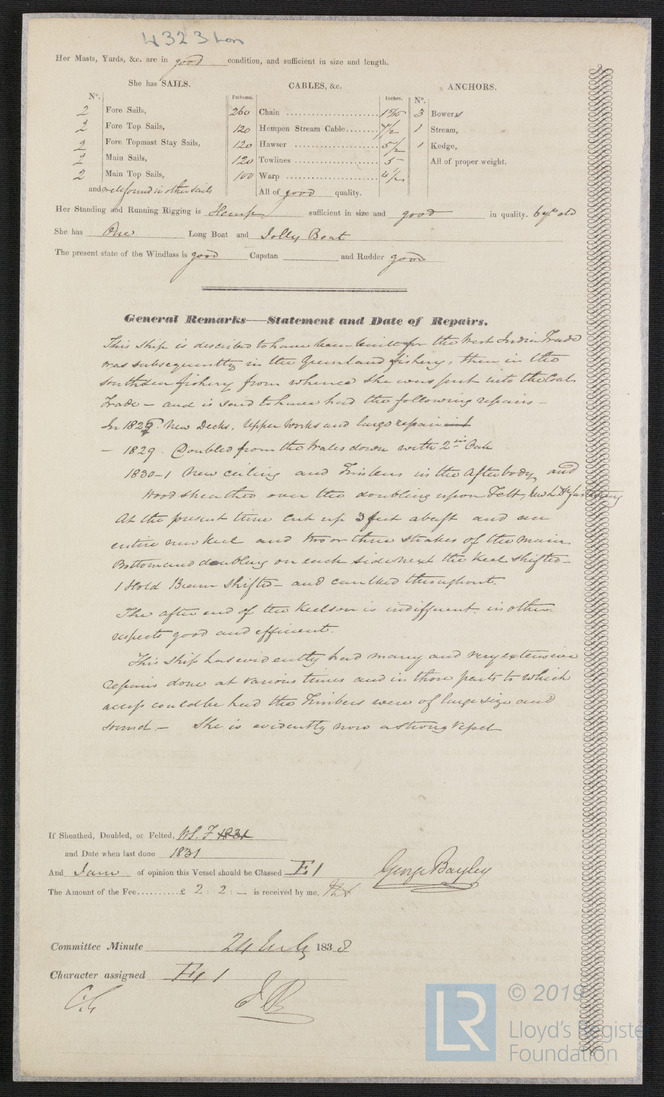 4323 Lon
Her Masts, Yards, &c. are in good condition, and sufficient in size and length.
She has SAILS. CABLES, &c. ANCHORS.
Nº. Fathoms. Inches. Nº.
2 Fore Sails, 260 Chain 3 Bowers
2 Fore Top Sails, 120 Hempen Stream Cable 7 1/2 1 Stream,
2 Fore Topmast Stay Sails, 120 Hawser 5 1/2 1 Kedge,
2 Main Sails, 120 Towlines 5 All of proper weight.
2 Main Top Sails, 100 Warp 4 1/2
and well found in other sails All of good quality.
Her Standing and Running Rigging is Hemp sufficient in size and good in quality. 6 yrs old
She has One Long Boat and Jolly Boat
The present state of the Windlass is good Capstan and Rudder good
General Remarks—Statement and Date of Repairs.
This ship is described to have been built for the West India Trade
was subsequently in the Greenland fishery, then in the
southern fishery from whence she was put into the Coal
Trade – and is said to have had the following repairs –
In 182 New Decks, Upper Works and large repair
– 1829. Doubled from the Wales down with 2 in Oak
1830-1 New ceiling and Timbers in the Afterbody, and
Wood sheathed over the doubling upon Felt, fastening
At the present time cut up 3 feet abaft and an
entire new Keel and two or three strakes of the main
Bottom and doubling on each side next the Keel shifted –
1 Hold Beam shifted – and caulked throughout
The after end of the Keelson is indifferent in other
respects good and efficient.
This Ship has evidently had many and very extensive
repairs done at various times and in those parts to which
access could be had the Timbers were of large size and
sound – She is evidently now a strong Vessel
If Sheathed, Doubled, or Felted, W.S. F 1831
and Date when last done 1831
And I am of opinion this Vessel should be Classed E 1 George Bayley
The Amount of the Fee £ 2 : 2 : – is received by me,
Committee Minute 24 July 1838
Character assigned E 1
© 2019
LR Lloyd's Registe
Foundation